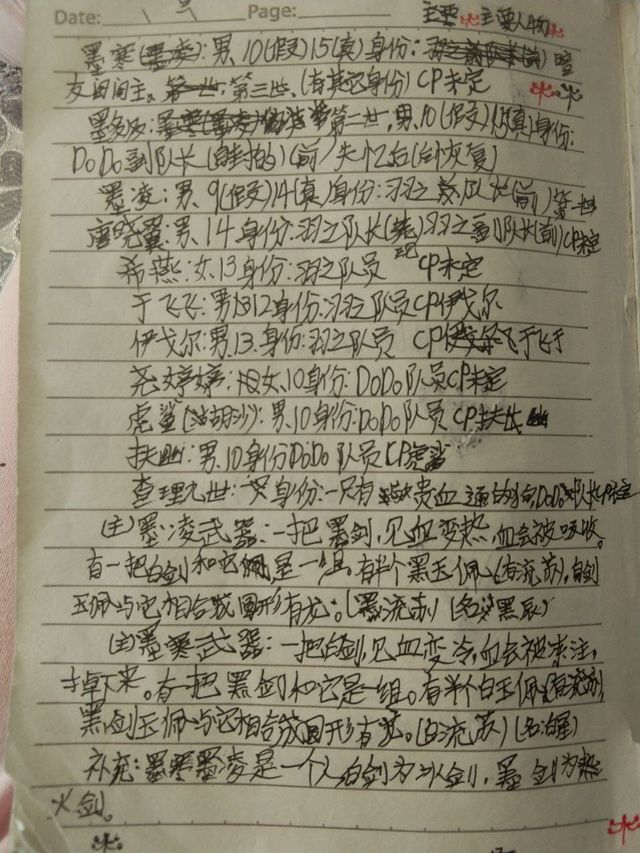 Date: Page: 主要 主要人物
墨寒(墨凌):男、10(假)15(真)身份: 暗
夜阁阁主。第三世、(有其它身份)CP未定
墨多多: 第二世,男、10(假)15(真)身份:
DoDo副队长(自封的)(前)失忆后(后恢复)
墨凌:男、9(假)14(真)身份:羽之 (前)第一世
唐晓翼:男、14身份:羽之队长(死)羽之副队长(前)CP未定
希燕:女、13身份:羽之队员 CP未定
于飞飞:男 12身份:羽之队员CP伊戈尔
伊戈尔:男、13.身份:羽之队员 CP 于飞飞
尧婷婷:女、10身份:DoDo队员CP未定
虎鲨(胡沙):男、10身份:DoDo队员CP扶幽
扶幽:男、10身份DoDo队员CP虎鲨
查理九世: 身份:一只有 贵血 的狗,DoDo队长CP未定
(主)墨凌武器:一把黑剑,见血变热,血会被吸收。
有一把白剑和它 是一组。有半个黑玉佩(有流苏),白剑
玉佩与它相合成圆形有龙。(墨流苏)(名 黑辰)
(主)墨寒武器:一把白剑,见血变冷,血会被冻注,
掉下来。有一把黑剑和它是一组。有半个白玉佩(有流苏),
黑剑玉佩与它相合成圆形有龙。(白流苏)(名白星)
补充:墨寒墨凌是一个人 白剑为冰剑,墨剑为热
火剑。